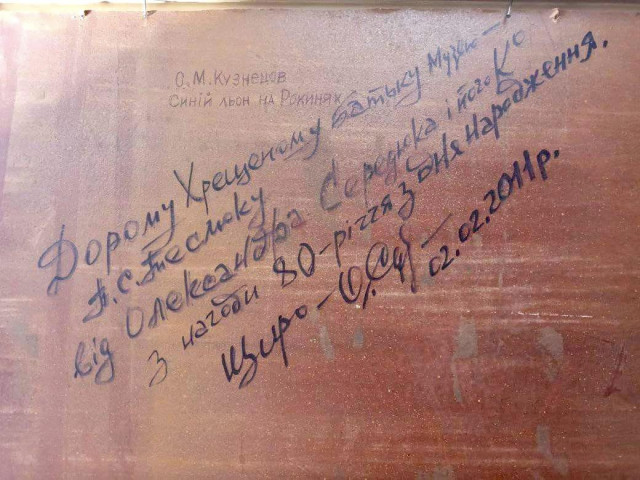 О.М.Кузнецов
Синій льон на Рокинях
Дорому Хрещеному батьку Музею -
П.С.
від Олександра Середюка і його Ко
з нагоди 80-річчя з дня Народження.
Щиро - О.Се
02.02.2011р.